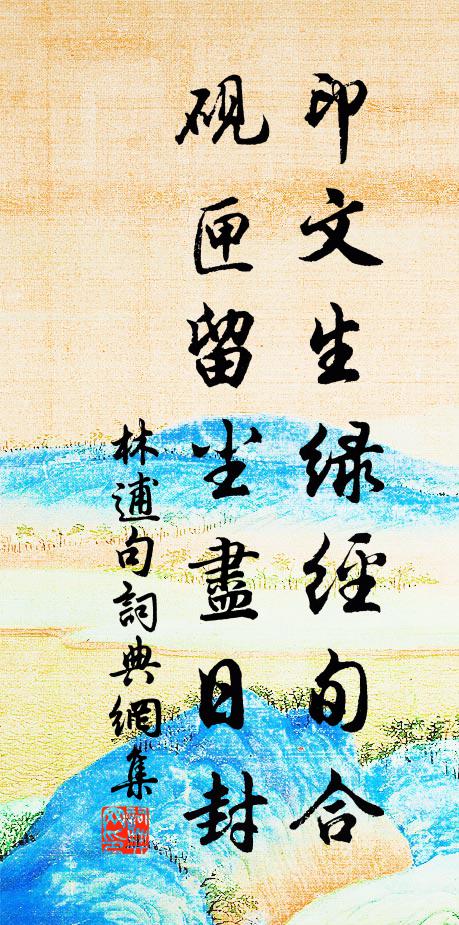 印文生緑經旬合
硯匣留尘盡日封
林逋句詞典網集